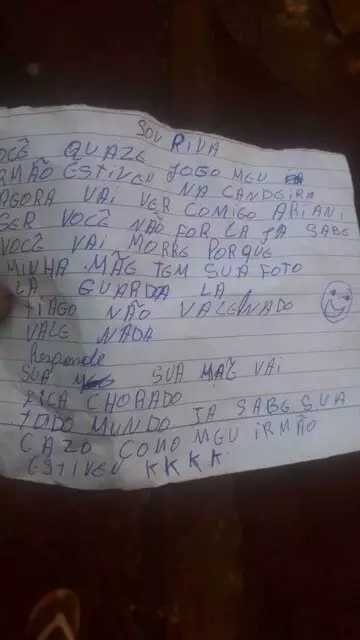 SOU RIVA
OCÊ QUAZE
RMÃO ESTIVEU JOGO MEU
NA CANDEIRA
AGORA VAI VER COMIGO ARIANI
SER VOCÊ NÃO FOR LA JA SABE
VOCÊ VAI MORRE PORQUE
MINHA MÃE TEM SUA FOTO
LA GUARDA LA
TIAGO NÃO VALENADO
VALE NADA
Responde
SUA SUA MÃE VAI
FICA CHORADO
TODO MUNDO JA SABE SUA
CAZO COMO MEU IRMÃO
ESTIVEU KKKK